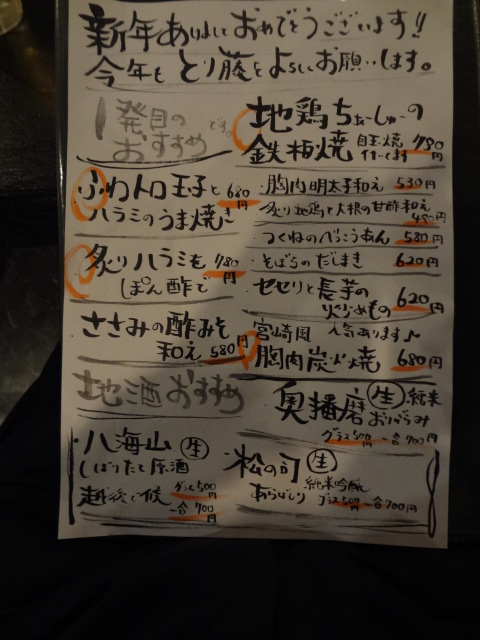 新年あけましておめでとうございます!!
今年も とり藤を よろしくお願いします。
1発目の
おすすめ です。
地鶏ちゃーしゅーの
鉄板焼 目玉焼 付いてます 780円
ふわトロ玉子と 680円
ハラミのうま焼き
胸肉明太子和え 530円
炙り地鶏と大根の甘酢和え
450円
つくねのべっこうあん 580円
炙りハラミを 780円
ぽん酢で
そぼろのだしまき 620円
セセリと長芋の
火炒めもの 620円
ささみの酢みそ
和え 580円
宮崎風 人気あります♪
胸肉炭火焼 680円
地酒おすすめ
奥播磨 生 純米
おりがらみ
グラス500円 一合700円
八海山 生
しぼりたて原酒
越後で候 グラス500円
一合700円
松の司 生
純米吟醸
あらばしり グラス500円 一合700円